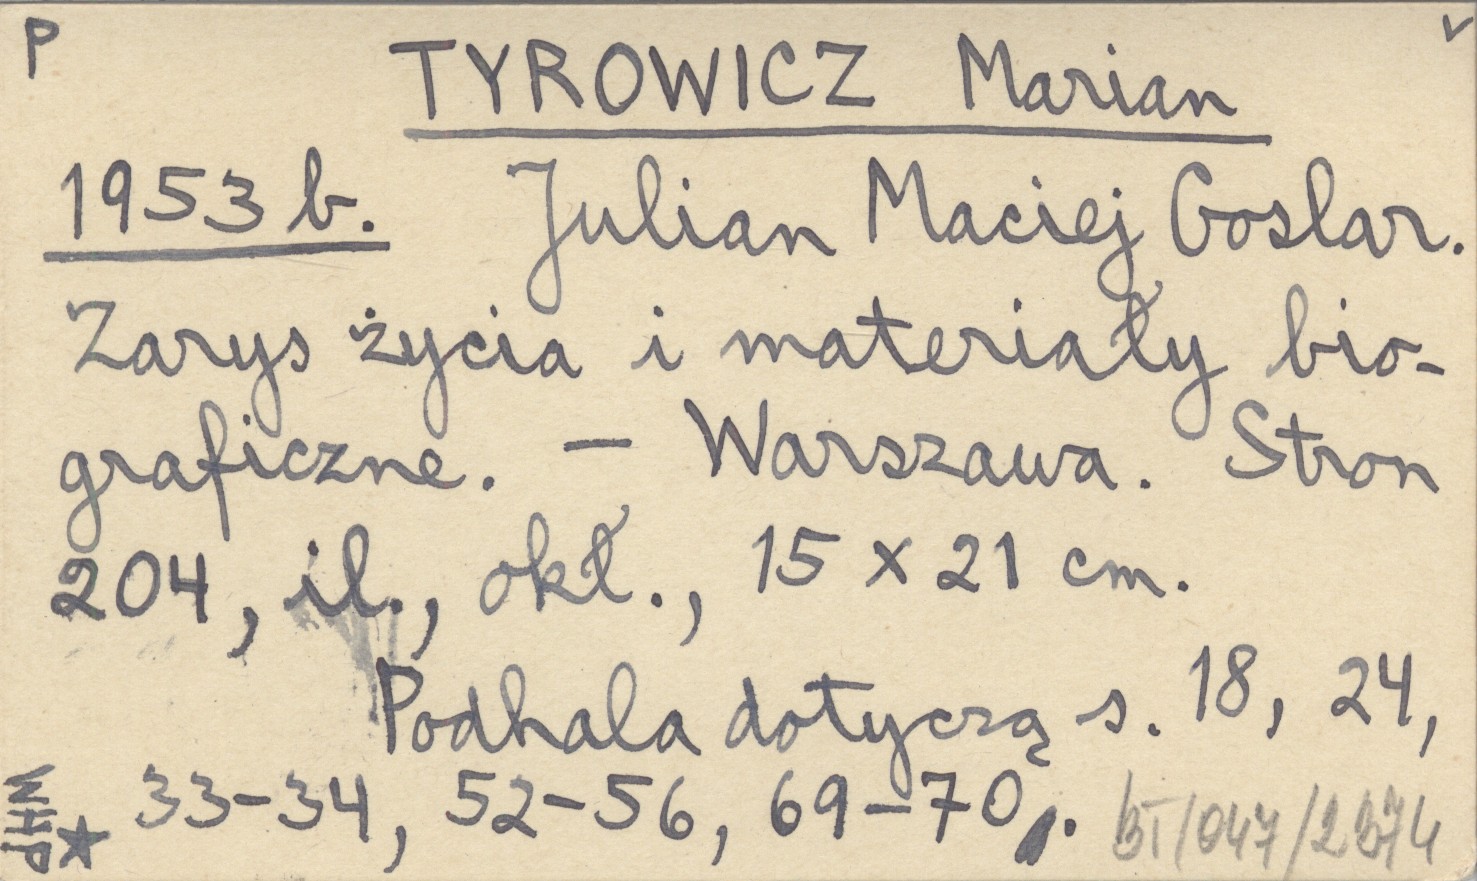 P
TYROWICZ Marian
1953 b. Julian Maciej Goslar.
Zarys życia i materiały bio-
graficzne. — Warszawa. Stron
204, il., okł., 15 x 21 cm.
Podhala dotyczą s. 18, 24,
33-34, 52-56, 69-70.
BT/047/2374